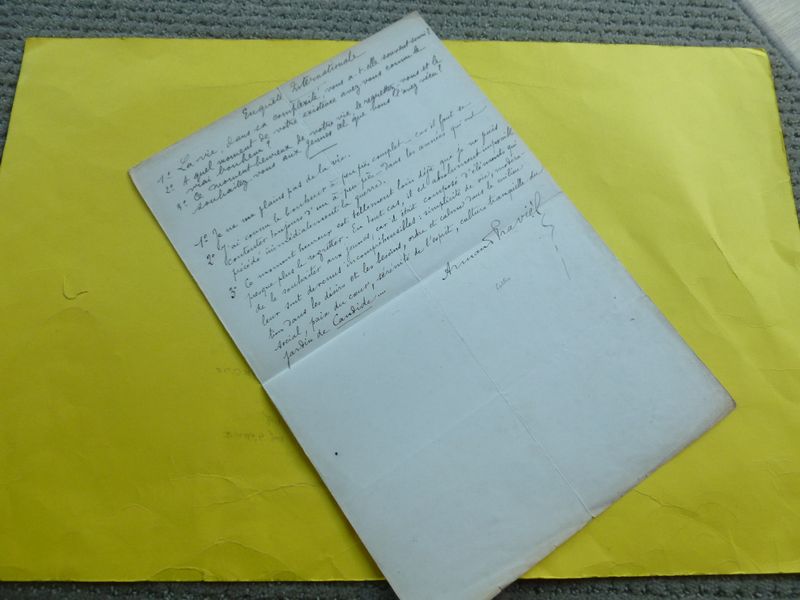 Enquête Internationale
1º La vie, dans sa complexité, vous a-t-elle souvent souri?
2º A quel moment de votre existence avez-vous connu le
vrai bonheur?
3º Ce moment heureux de votre vie, le regrettez-vous et le
souhaitez-vous aux jeunes tel que vous l'avez vécu?
1º Je ne me plains pas de la vie.
2º J'ai connu le bonheur à peu près complet - car il faut se
contenter toujours d'un à peu près - dans les années qui ont
précédé immédiatement la guerre.
3º Ce moment heureux est tellement loin déjà que je ne puis
presque plus le regretter. En tout cas, il est absolument impossible
de le souhaiter aux jeunes, car il était composé d'éléments qui
leur sont devenus incompréhensibles: simplicité de vie, modéra-
tion dans les désirs et les besoins, ordre et calme dans le milieu
social, paix du cœur, sérénité de l'esprit, culture tranquille du
jardin de Candide...
Armand Praviel